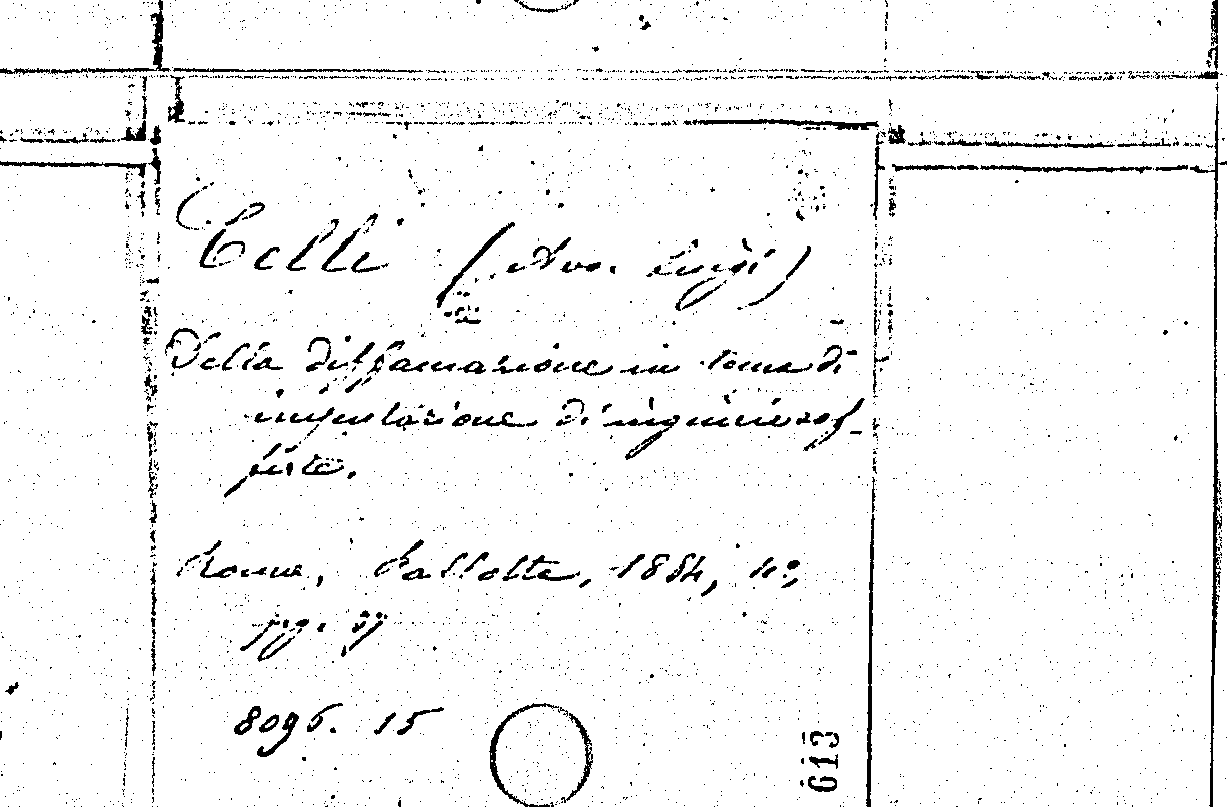 Celli (Avv. Luigi)
Della diffamazione in tema di
imputazione di ingiurie sof-
ferte.
Roma, Pallotta, 1884, 4°,
pag. 37
8096. 15
613